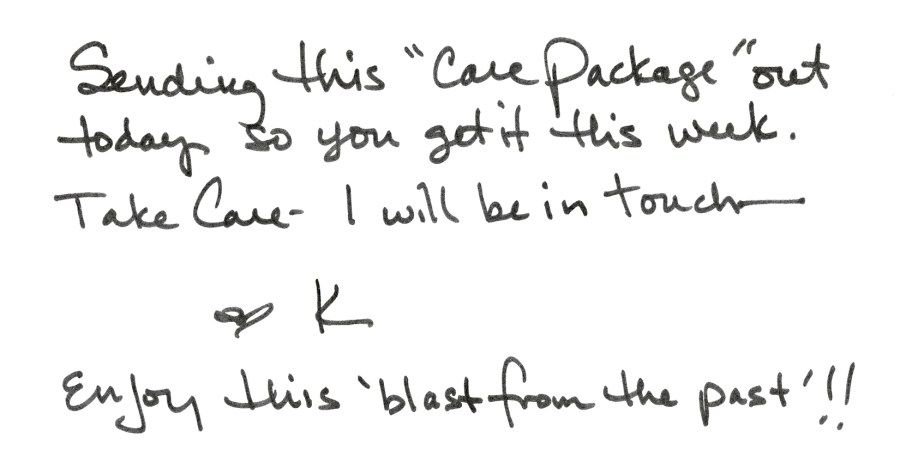 Sending this "Care Package" out
today so you get it this week.
Take Care - I will be in touch—
♡ K
Enjoy this 'blast from the past'!!